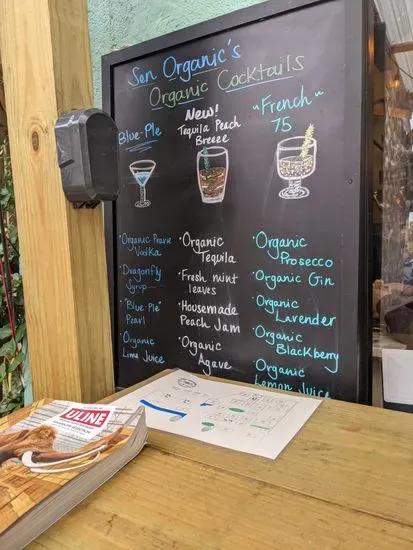 Sen Organic's
Organic Cocktails
Blue-Ple
New!
Tequila Peach
Breeze
"French"
75
• Organic Prarie
Vodka
Dragonfly
Syrup
• "Blue-Ple"
Pearl
• Organic
Lime Juice
• Organic
Tequila
• Fresh mint
leaves
• Housemade
Peach Jam
• Organic
Agave
• Organic
Prosecco
• Organic Gin
• Organic
Lavender
• Organic
Blackberry
• Organic
Lemon Juice
ULINE